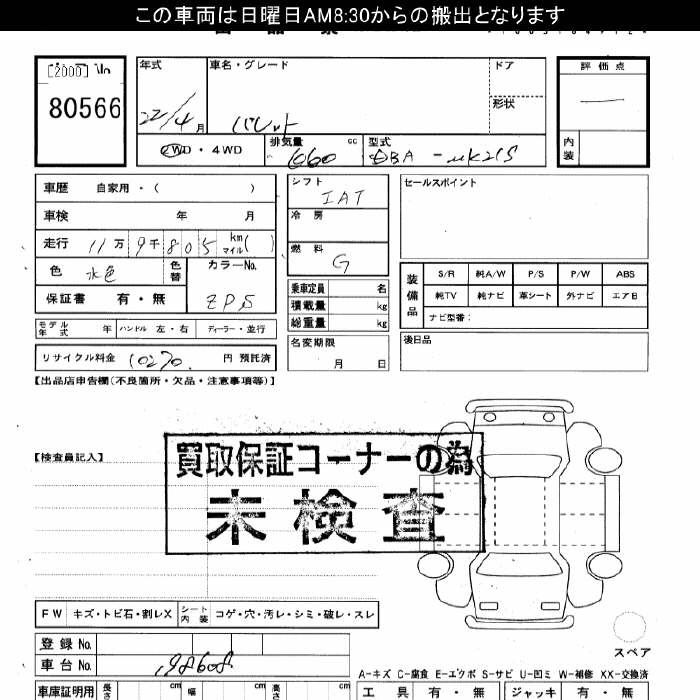 この車両は日曜日AM8:30からの搬出となります
[2000] No
80566
年式
22/4月
車名・グレード
パレット
ドア
形状
評価点
内装
2WD・4WD
排気量
660 cc
型式
DBA-MK21S
車歴 自家用・( )
車検 年 月
走行 11万9千805 km マイル( )
色 水色 色替
カラーNo.
ZPS
保証書 有・無
モデル年式 年 ハンドル 左・右 ディーラー・並行
リサイクル料金 10270 円 預託済
シフト
IAT
冷房
燃料
G
乗車定員 名
積載量 kg
総重量 kg
名変期限
月 日
セールスポイント
装備品
S/R 純A/W P/S P/W ABS
純TV 純ナビ 革シート 外ナビ エアB
ナビ型番:
後日品
【出品店申告欄(不良箇所・欠品・注意事項等)】
【検査員記入】
買取保証コーナーの為
未検査
FW キズ・トビ石・割レX シート内装 コゲ・穴・汚レ・シミ・破レ・スレ
スペア
登録No.
車台No. 198608
A-キズ C-腐食 E-エクボ S-サビ U-凹ミ W-補修 XX-交換済
車庫証明用 長さ cm 幅 cm 高さ cm
工具 有・無 ジャッキ 有・無